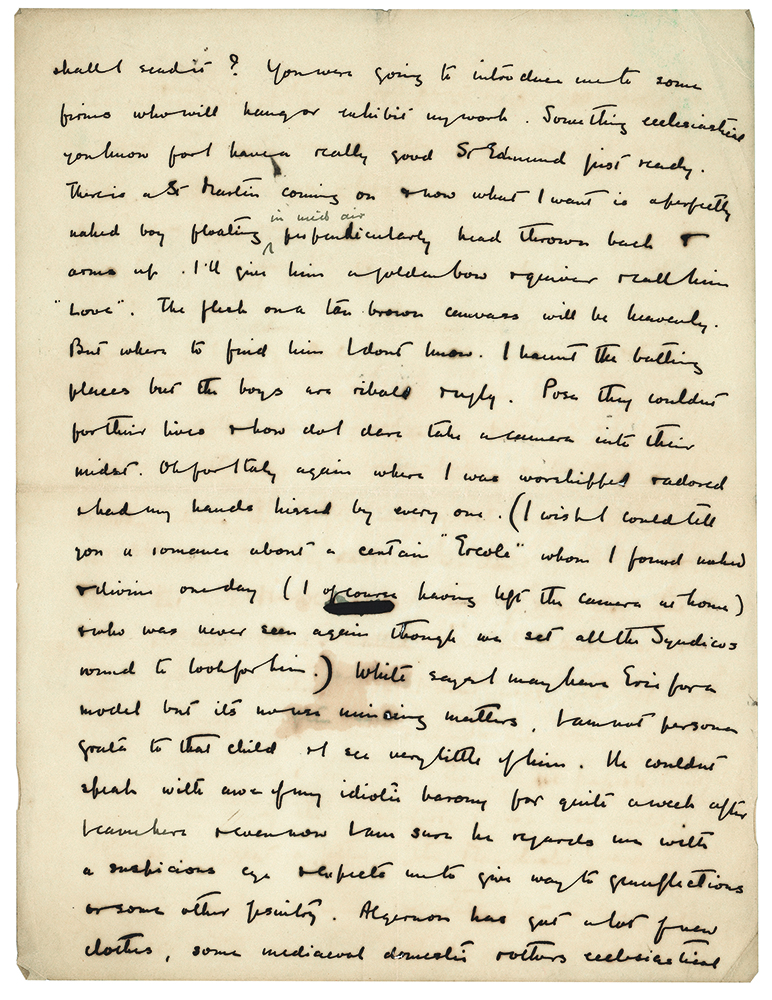 shall I send it? You were going to introduce me to some
firms who will hang or exhibit my work. Something ecclesiastical
you know for I have a really good St Edmund just ready.
There is a St Martin coming on & now what I want is a perfectly
naked boy floating in mid air perpendicularly head thrown back &
arms up. I'll give him a golden bow & quiver & call him
"Love". The flesh on a tan brown canvass will be heavenly.
But where to find him I dont know. I haunt the bathing
places but the boys are ribald & ugly. Pose they couldnt
for their lives & how do I dare take a camera into their
midst. Oh for Italy again where I was worshipped & adored
& had my hands kissed by every one. (I wish I could tell
you a romance about a certain "Ercole" whom I found naked
& divine one day (I of course having left the camera at home)
& who was never seen again though we set all the Syndicos
round to look for him.) White says I may have Eric for a
model but its no use mincing matters, I am not persona
grata to that child & I see very little of him. He couldnt
speak with awe of my idiotic barony for quite a week after
I came here & even now I am sure he regards me with
a suspicious eye & expects me to give way to genuflections
or some other jesuitry. Algernon has got a lot of new
clothes, some mediaeval domestic & others ecclesiastical